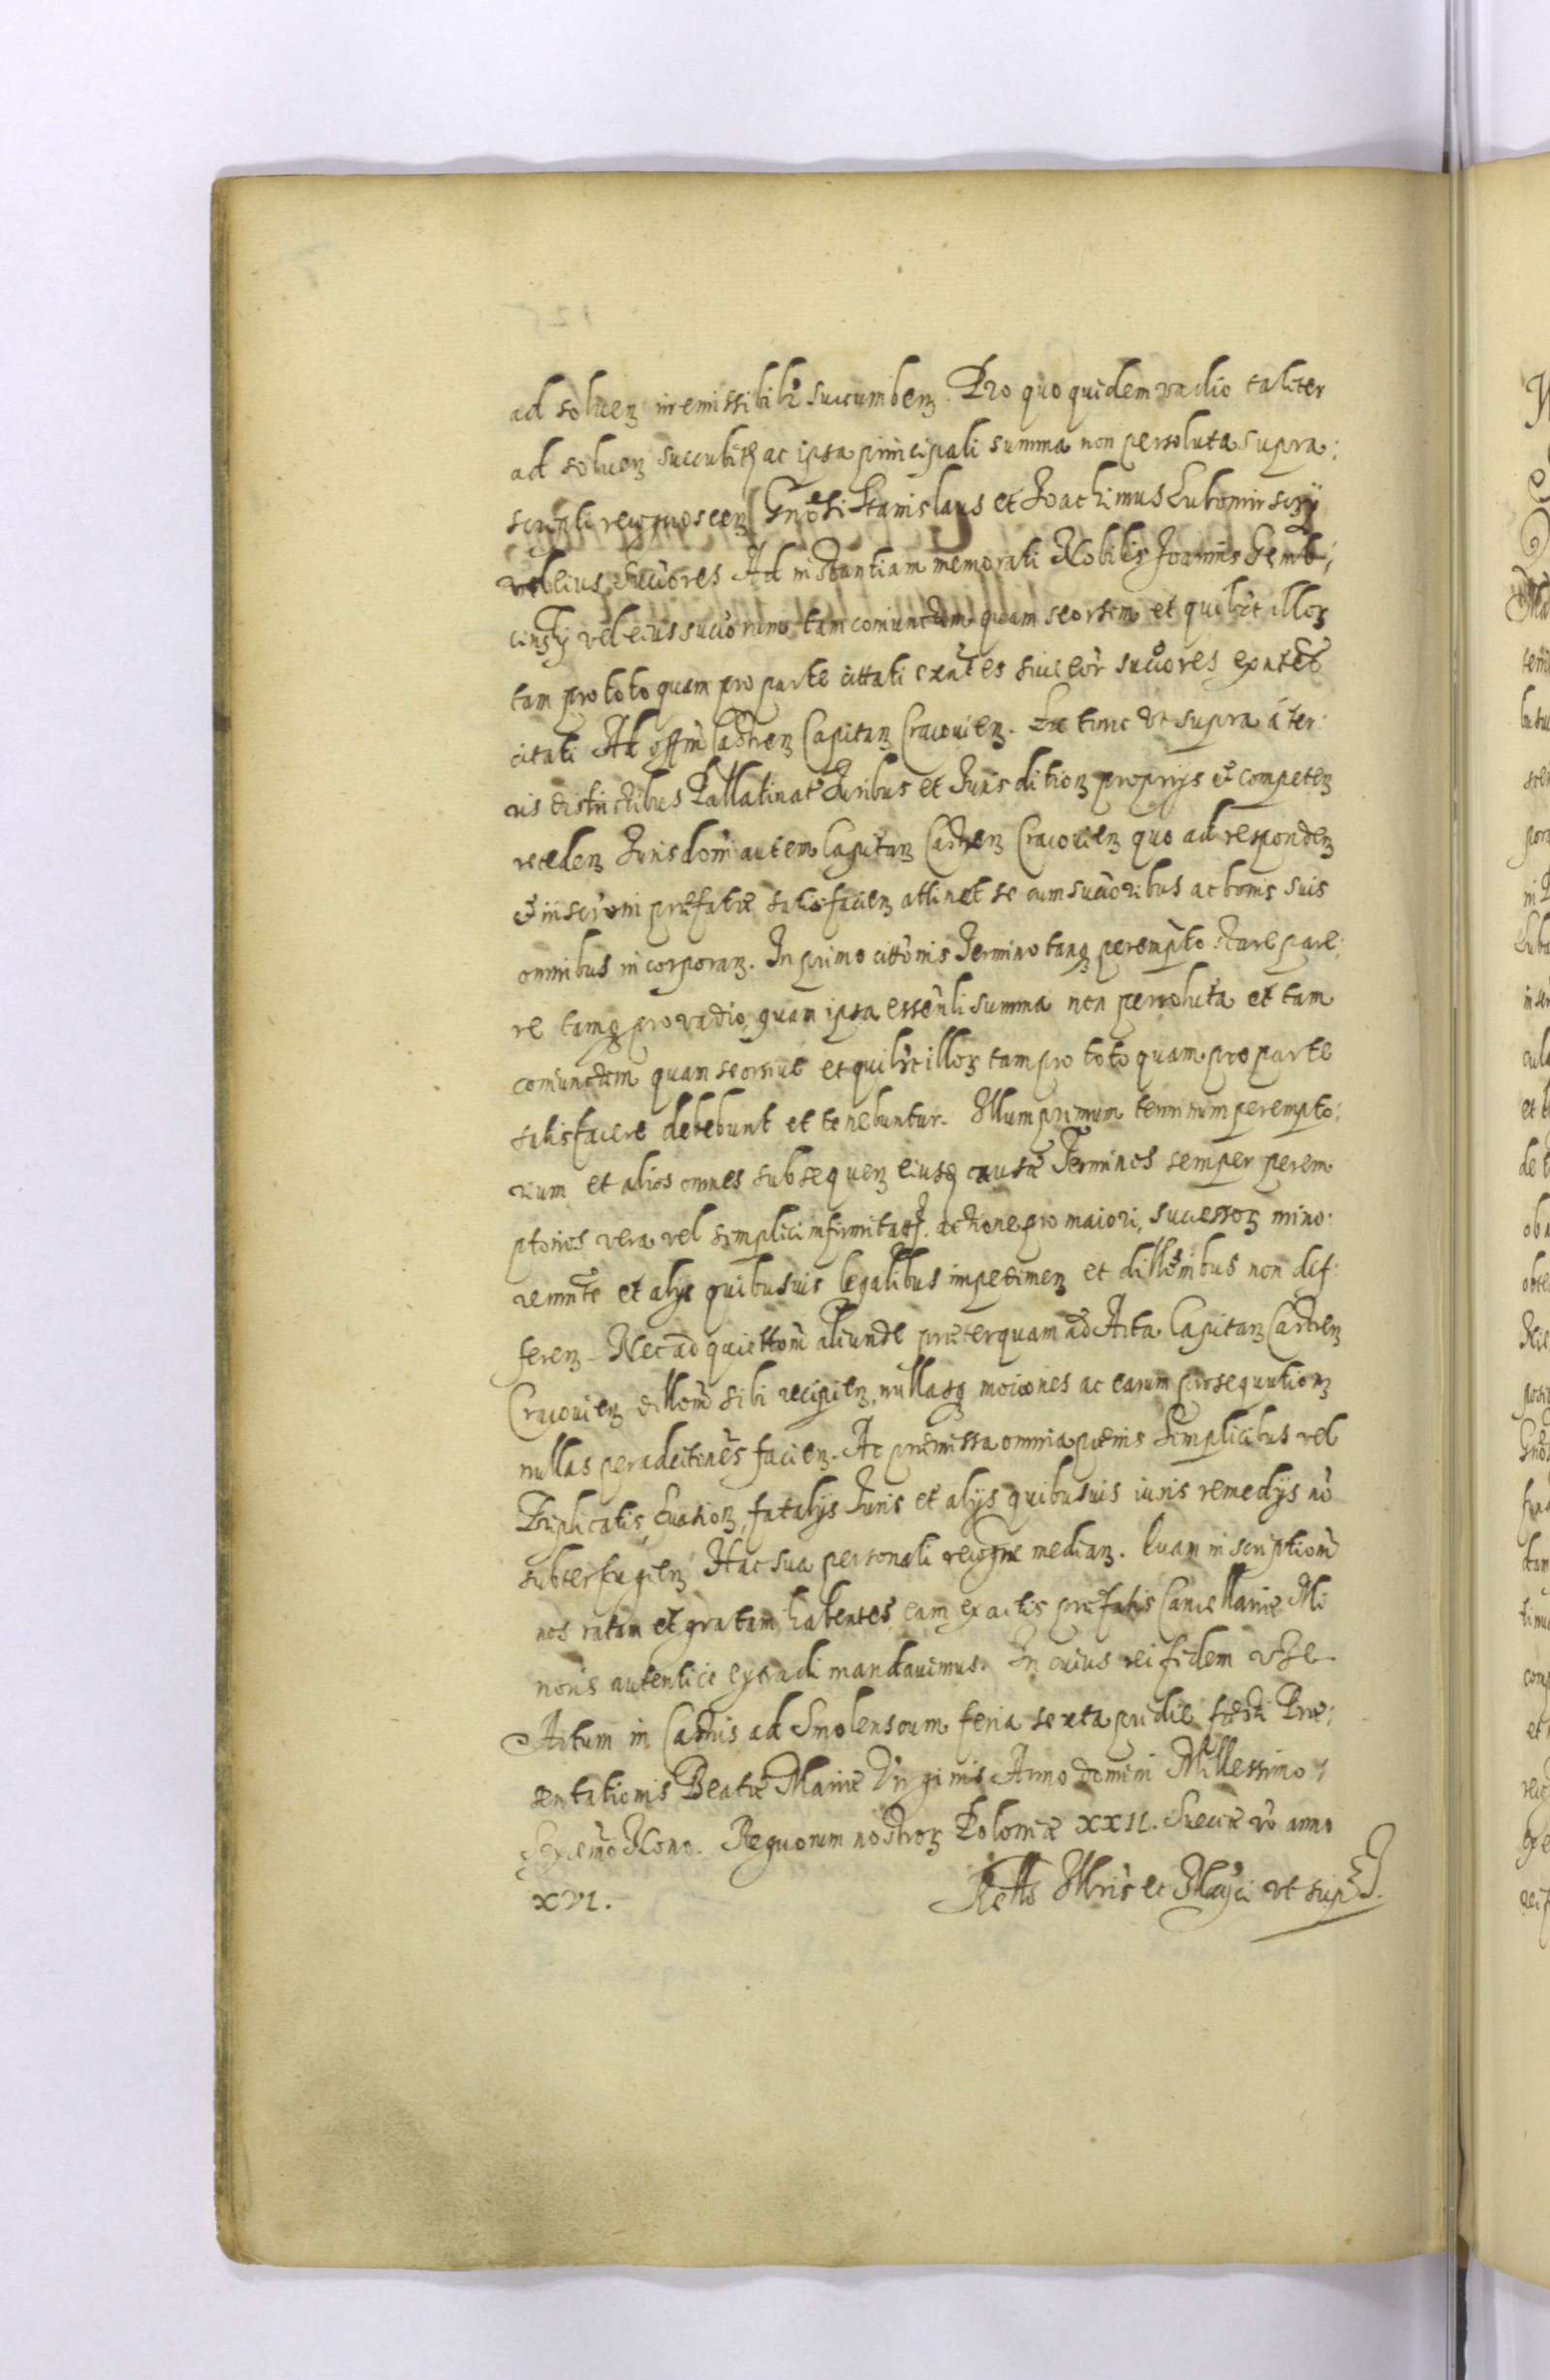 ad soluen irremissibilr succumben. Pro quo quidem vadio taliter
ad soluen succubit ac ipsa principali summa non persoluta supra:
scripti recognoscen Gnosi Stanislaus et Joachimus Lubomirscÿ
vel eius succores Ad instantiam memorati Nobilis Joannis Gemb:
vel eius succorum tam coniunctim quam seorsim et quilibt illoꝝ
tam pro toto quam pro parte cittati exntes siue eor succores exntes
citati Ad offm Castren Capitan Cracouien. Ex tunc vt supra á ter:
ris districtibus Pallatinat Juribus et Jurisdition proprijs et competen
receden Jurisdoni autem Capitan Castren Cracouien quo ad responden
et inscroni præfatæ satisfacien attinet se cum succoribus ac bonis suis
omnibus incorporan. In primo cittonis Termino tanq perempto: stare pare:
re tamq pro vadio, quam ipsa essenli summa non persoluta et tam
coniunctim quam seorsiue et quilbt illoꝝ tam pro toto quam pro parte
satisfacere debebunt et tenebuntur. Illum primum terminum perempto:
rium et alios omnes subsequen eiusq causæ Terminos semper perem
ptorios vera vel simplici infirmitate. actione pro maiori, successoꝝ mino:
rennte et alys quibusuis legalibus impedimen et dillonibus non dif:
feren. Nec ad quiettom aliunde præterquam ad Acta Capitan Castren
Cracouien dillom sibi recipien, nullasq mocones ac earum prosequution
nullas peradcitones facien. Ac præmissa omnia pænis Simplicibus vel
Triplicatis Euasion, fatalys Juris et alys quibusuis iuris remedys no
subterfugien Hac sua personali recogne median. Quam inscriptiom
nos ratam et gratam habentes, eam ex actis præfatis Cancellariæ Mi
noris autentice extradi mandauimus. In cuius rei fidem
Actum in Castris ad Smolenscum feria sexta pridie festi Præ:
sentationis Beatæ Mariæ Virginis Anno domini Millessimo
Sexcemo Nono. Regnorum nostroꝝ Poloniæ XXII. Sueciæ vo anno
XVI.
Retto Illris et Magci vt supra.